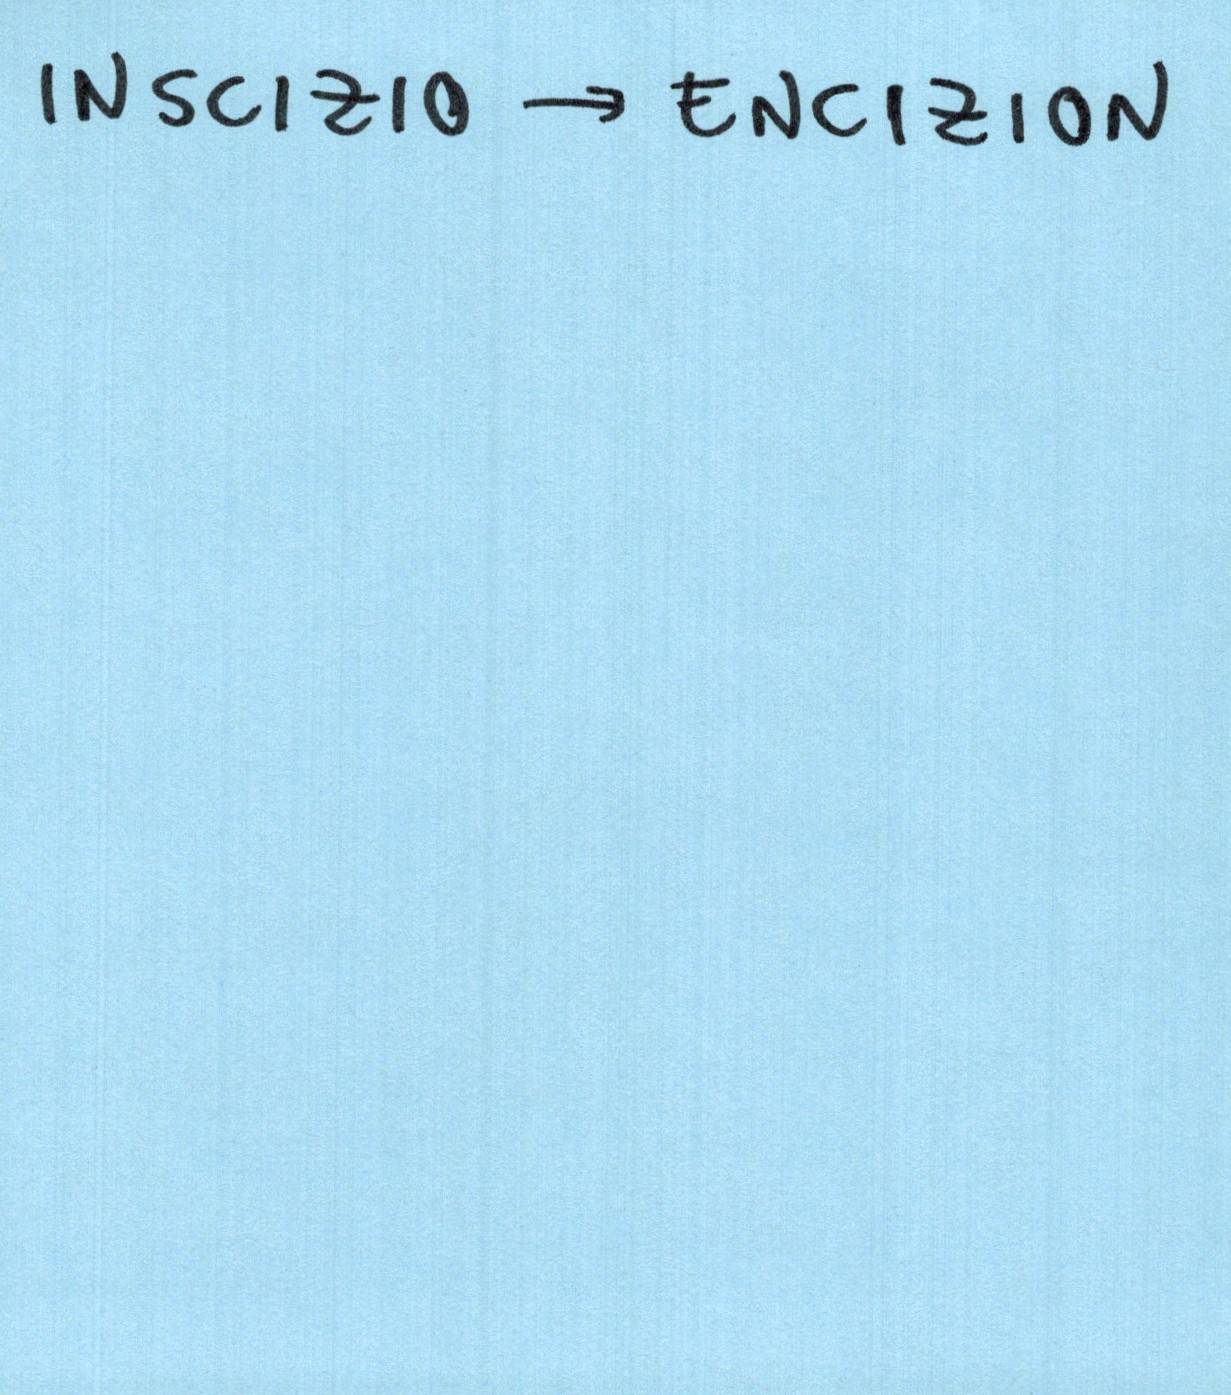 INSCIZIO → ENCIZION